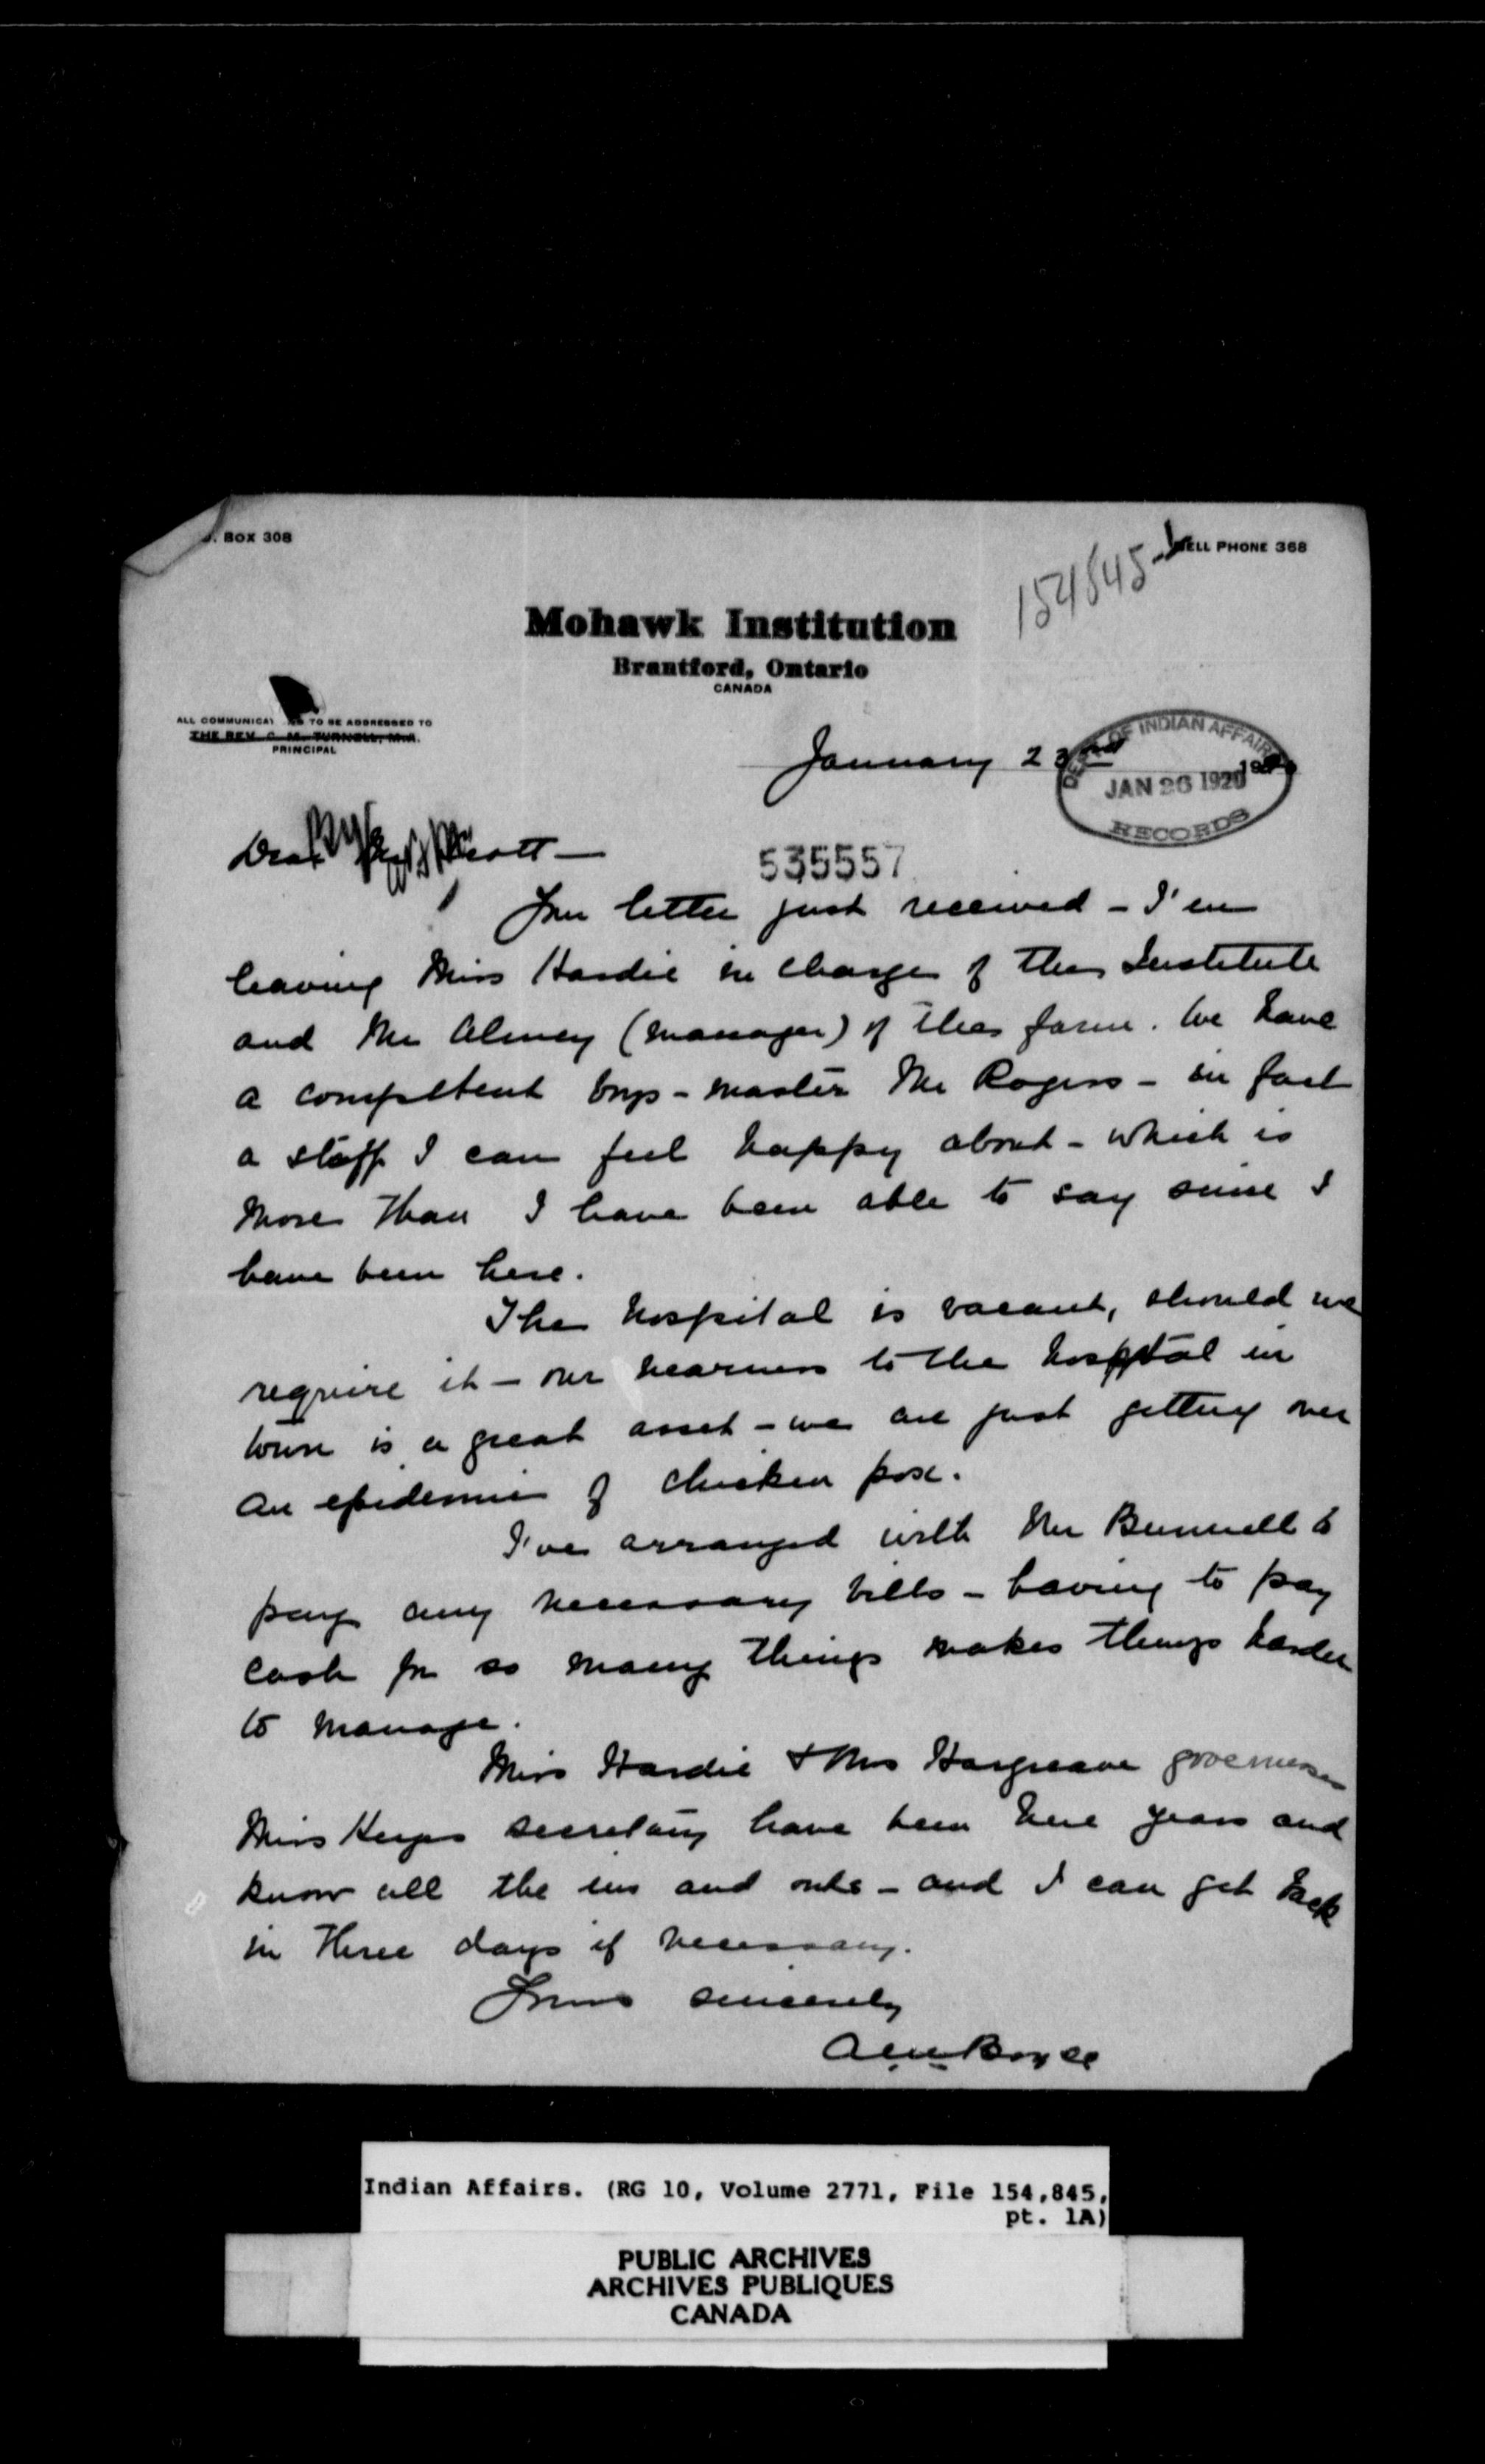 BOX 308
BELL PHONE 368
154845-1
Mohawk Institution
Brantford, Ontario
CANADA
ALL COMMUNICAT TO BE ADDRESSED TO
THE REV. C. M. TURNELL, M.A.
PRINCIPAL
January 23rd 1920
DEPT OF INDIAN AFFAIRS
JAN 26 1920
RECORDS
Dear Scott —
535557
Your letter just received - I'm
leaving Miss Hardie in charge of the Institute
and Mr Almey (manager) of the farm. We have
a competent boys - master Mr Rogers - in fact
a staff I can feel happy about - which is
more than I have been able to say since I
have been here.
The hospital is vacant, should we
require it - our nearness to the hospital in
town is a great asset - we are just getting over
an epidemic of chicken pox.
I've arranged with Mr Bunnell to
pay any necessary bills - having to pay
cash for so many things makes things harder
to manage.
Miss Hardie & Mrs Hargreave governesses
Miss Keyes secretary have been here years and
know all the ins and outs - and I can get back
in three days if necessary.
Yours sincerely
Boyce
Indian Affairs. (RG 10, Volume 2771, File 154,845,
pt. 1A)
PUBLIC ARCHIVES
ARCHIVES PUBLIQUES
CANADA